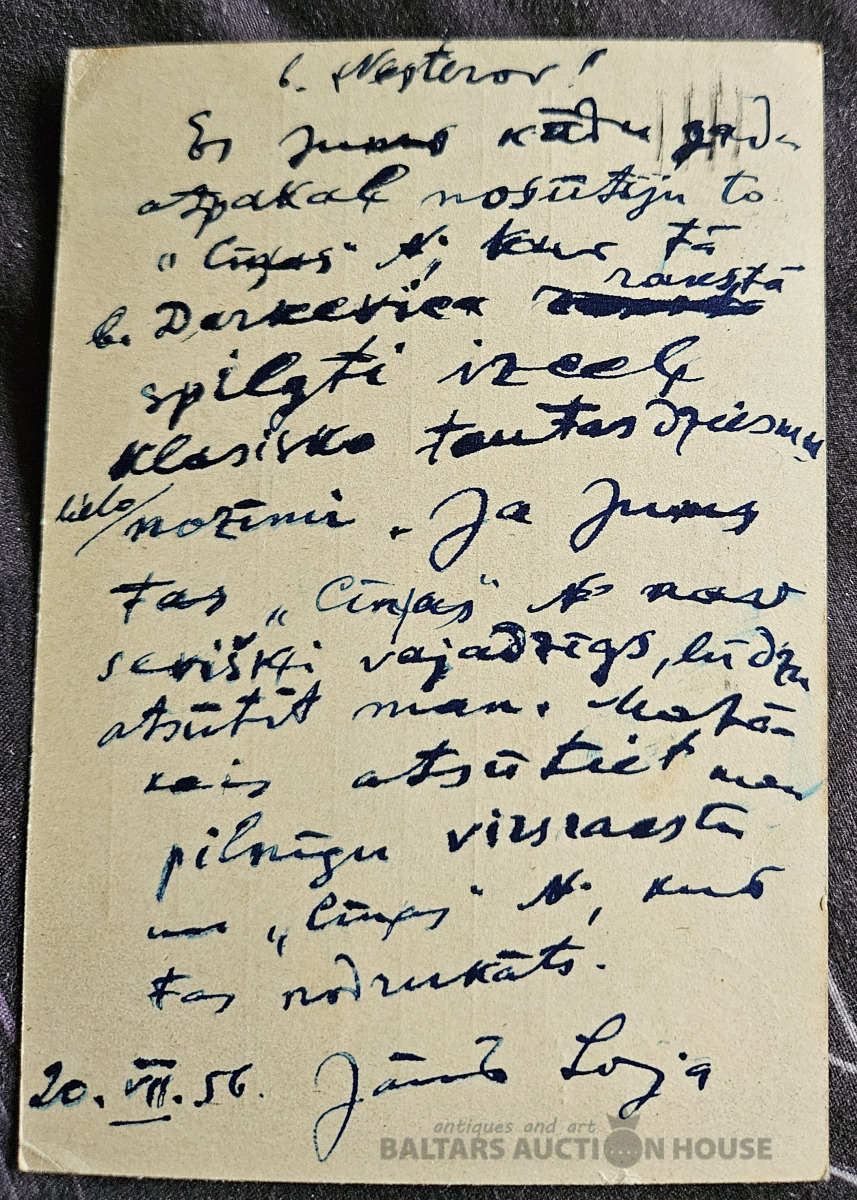 b. Nesterov!
Es Jums kādu gadu
atpakaļ nosūtīju to
„Cīņas" №, kur tā
rakstā
b. Darkeviča
spilgti izceļ
klasisko tautas dziesmu
lielo/
nozīmi. Ja Jums
tas „Cīņas" № nav
sevišķi vajadzīgs, lūdzu
atsūtīt man. Mazā-
kais atsūtiet man
pilnīgu virsrakstu
un „Cīņas" №, kurā
tas nodrukāts.
20. VII. 56. Jānis Loja
antiques and art
BALTARS AUCTION HOUSE